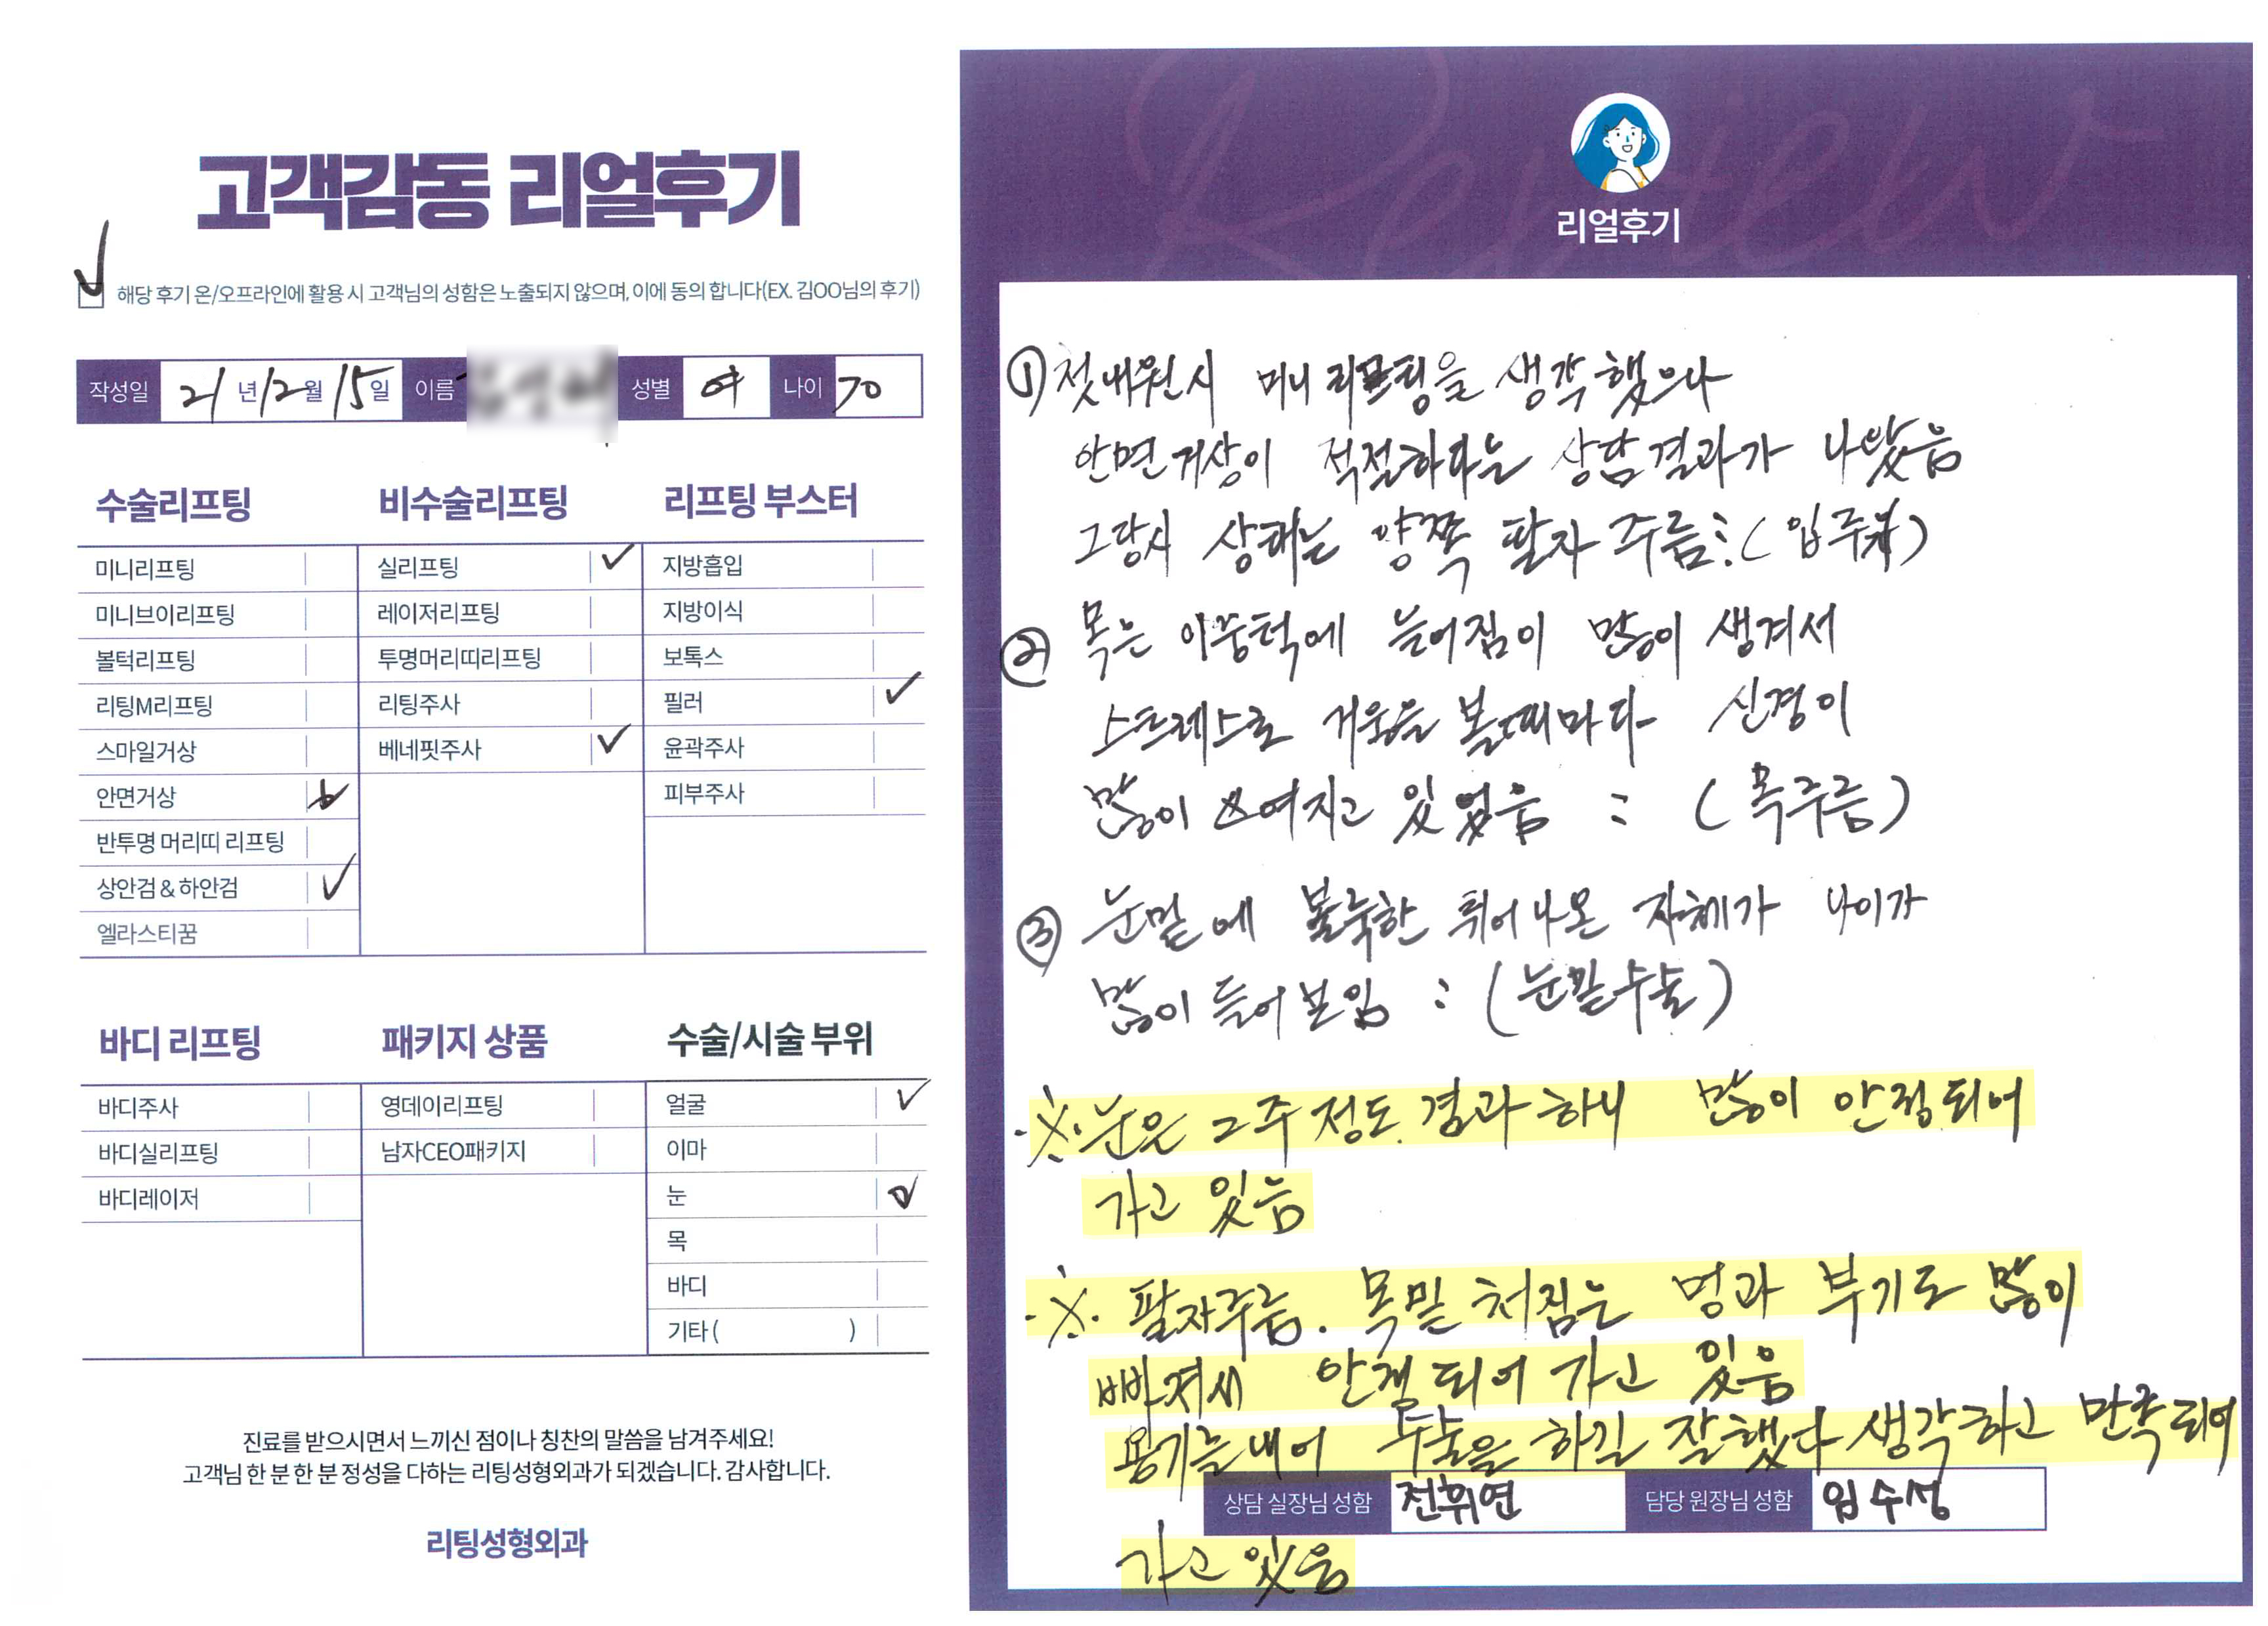 고객감동 리얼후기
해당 후기 온/오프라인에 활용 시 고객님의 성함은 노출되지 않으며, 이에 동의 합니다(EX. 김OO님의 후기)
작성일 21년 12월 15일 이름 성별 여 나이 70
수술리프팅
미니리프팅
미니브이리프팅
볼턱리프팅
리팅M리프팅
스마일거상
안면거상
반투명 머리띠 리프팅
상안검 & 하안검
엘라스티꿈
비수술리프팅
실리프팅
레이저리프팅
투명머리띠리프팅
리팅주사
베네핏주사
리프팅 부스터
지방흡입
지방이식
보톡스
필러
윤곽주사
피부주사
바디 리프팅
바디주사
바디실리프팅
바디레이저
패키지 상품
영데이리프팅
남자CEO패키지
수술/시술 부위
얼굴
이마
눈
목
바디
기타 ( )
진료를 받으시면서 느끼신 점이나 칭찬의 말씀을 남겨주세요!
고객님 한 분 한 분 정성을 다하는 리팅성형외과가 되겠습니다. 감사합니다.
리팅성형외과
Review
리얼후기
① 첫내원시 미니 리프팅을 생각 했으나
안면거상이 적절하다는 상담결과가 나왔음
그당시 상태는 양쪽 팔자 주름 : (입주위)
② 목은 이중턱에 늘어짐이 많이 생겨서
스트레스로 거울을 볼때마다 신경이
많이 쓰여지고 있었음 : (목주름)
③ 눈밑에 불룩한 튀어나온 자체가 나이가
많이 들어 보임 : (눈밑수술)
※ 눈은 2주 정도 경과 하니 많이 안정되어
가고 있음
※ 팔자주름. 목밑 처짐은 멍과 부기도 많이
빠져서 안정되어 가고 있음
용기를 내어 수술을 하길 잘했다 생각하고 만족되어
상담 실장님 성함 전휘연 담당 원장님 성함 임수성
가고 있음